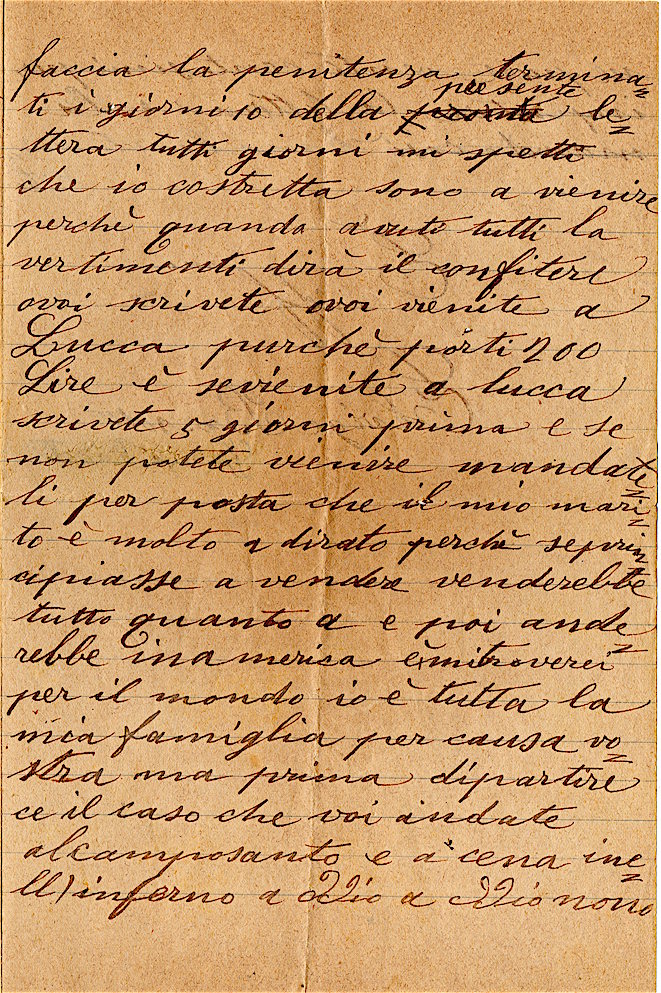 faccia la penitenza termina=
presente
ti i giorni 10 della le=
ttera tutti giorni mi spetti
che io costretta sono a vienire
perchè quando avuti tutti la
vertimenti dirà il confitere
ovoi scrivete ovoi vienite a
Lucca purchè porti 200
Lire è sevienite a lucca
scrivete 5 giorni prima e se
non potete vienire mandate=
li per posta che il mio mari=
to è molto adirato perchè seprin=
cipiasse a vendere venderebbe
tutto quanto a e poi ande=
rebbe inamerica èmitroverei
per il mondo io è tutta la
mia famiglia per causa vo=
stra ma prima dipartire
ce il caso che voi andate
alcamposanto e a cena ine=
ll'inferno a dDio a dDio nono